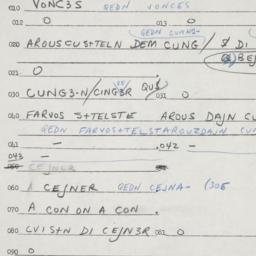 010 VONC3S QEDN VONCES
012 0 013 0
QEDN CUANG-
020 AROUSCUS+TELN DEM CUNG/ S DI
021 0
030 CUNG3-N/CINGER QUS 031 0
040 FARVOS S+TELSTE AROUS DAJN CU
QEDN FARVOS+TELSTAROUZDAJN CUN
041 — .042 —
043 —
CEJNER
060 CEJNER QEDN CEJNA- (30E
070 A CON ON A CON .
080 LVIS+N DI CEJN3R 081 0
090 0